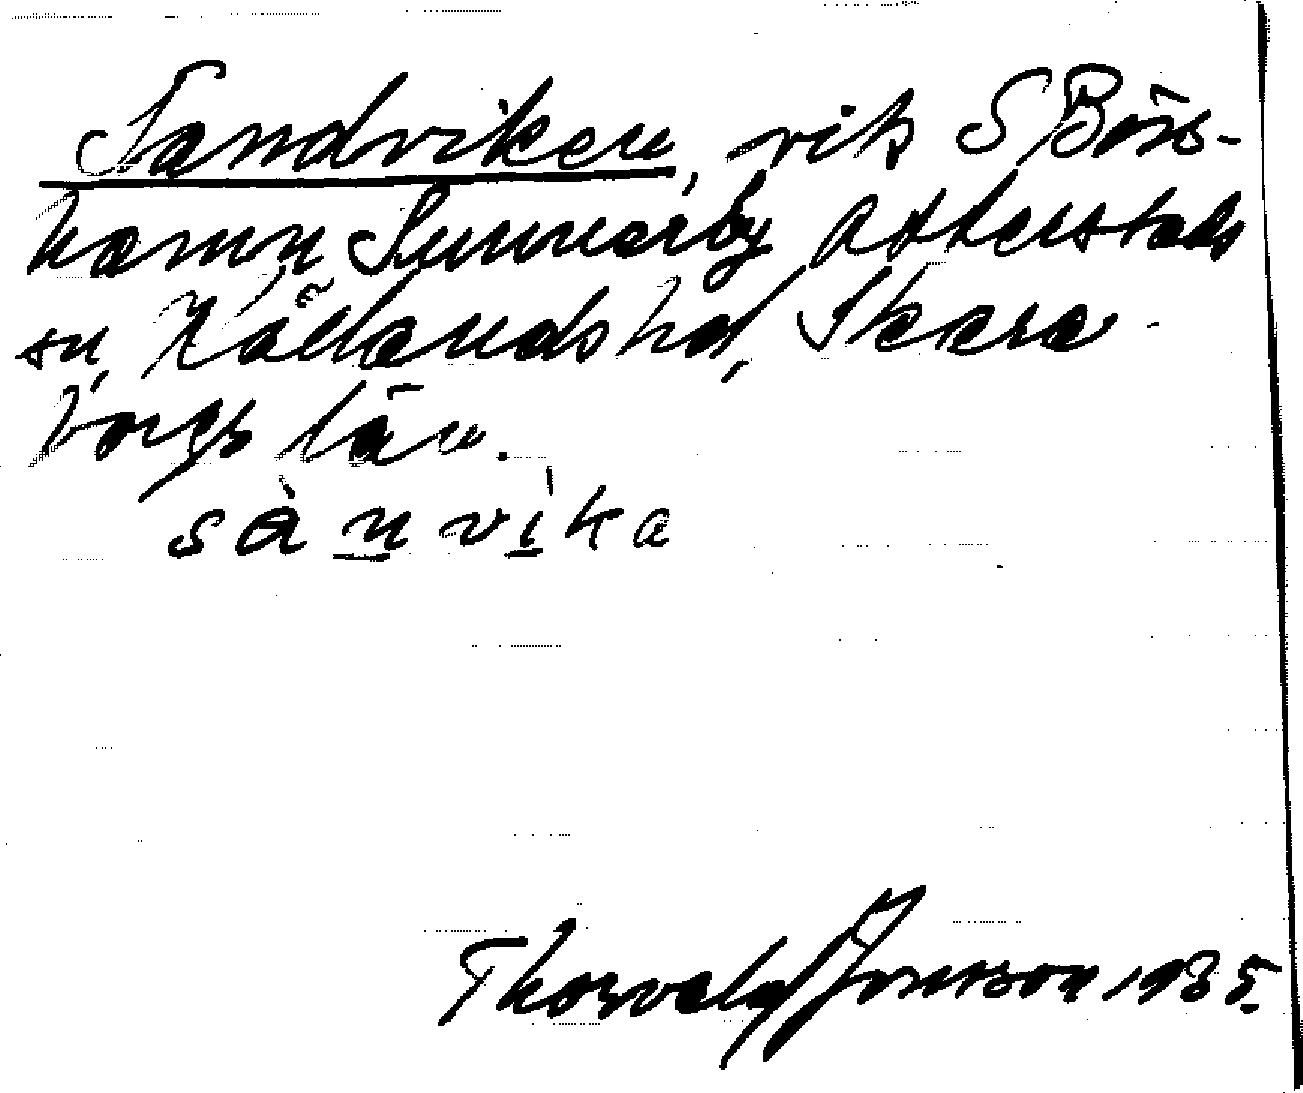 Sandviken, vik S Börs-
hamn Sunnerby Otterstads
sn, Kållands hd, Skara-
borgs län.
sànvika
Thorvald Jonsson 1935.